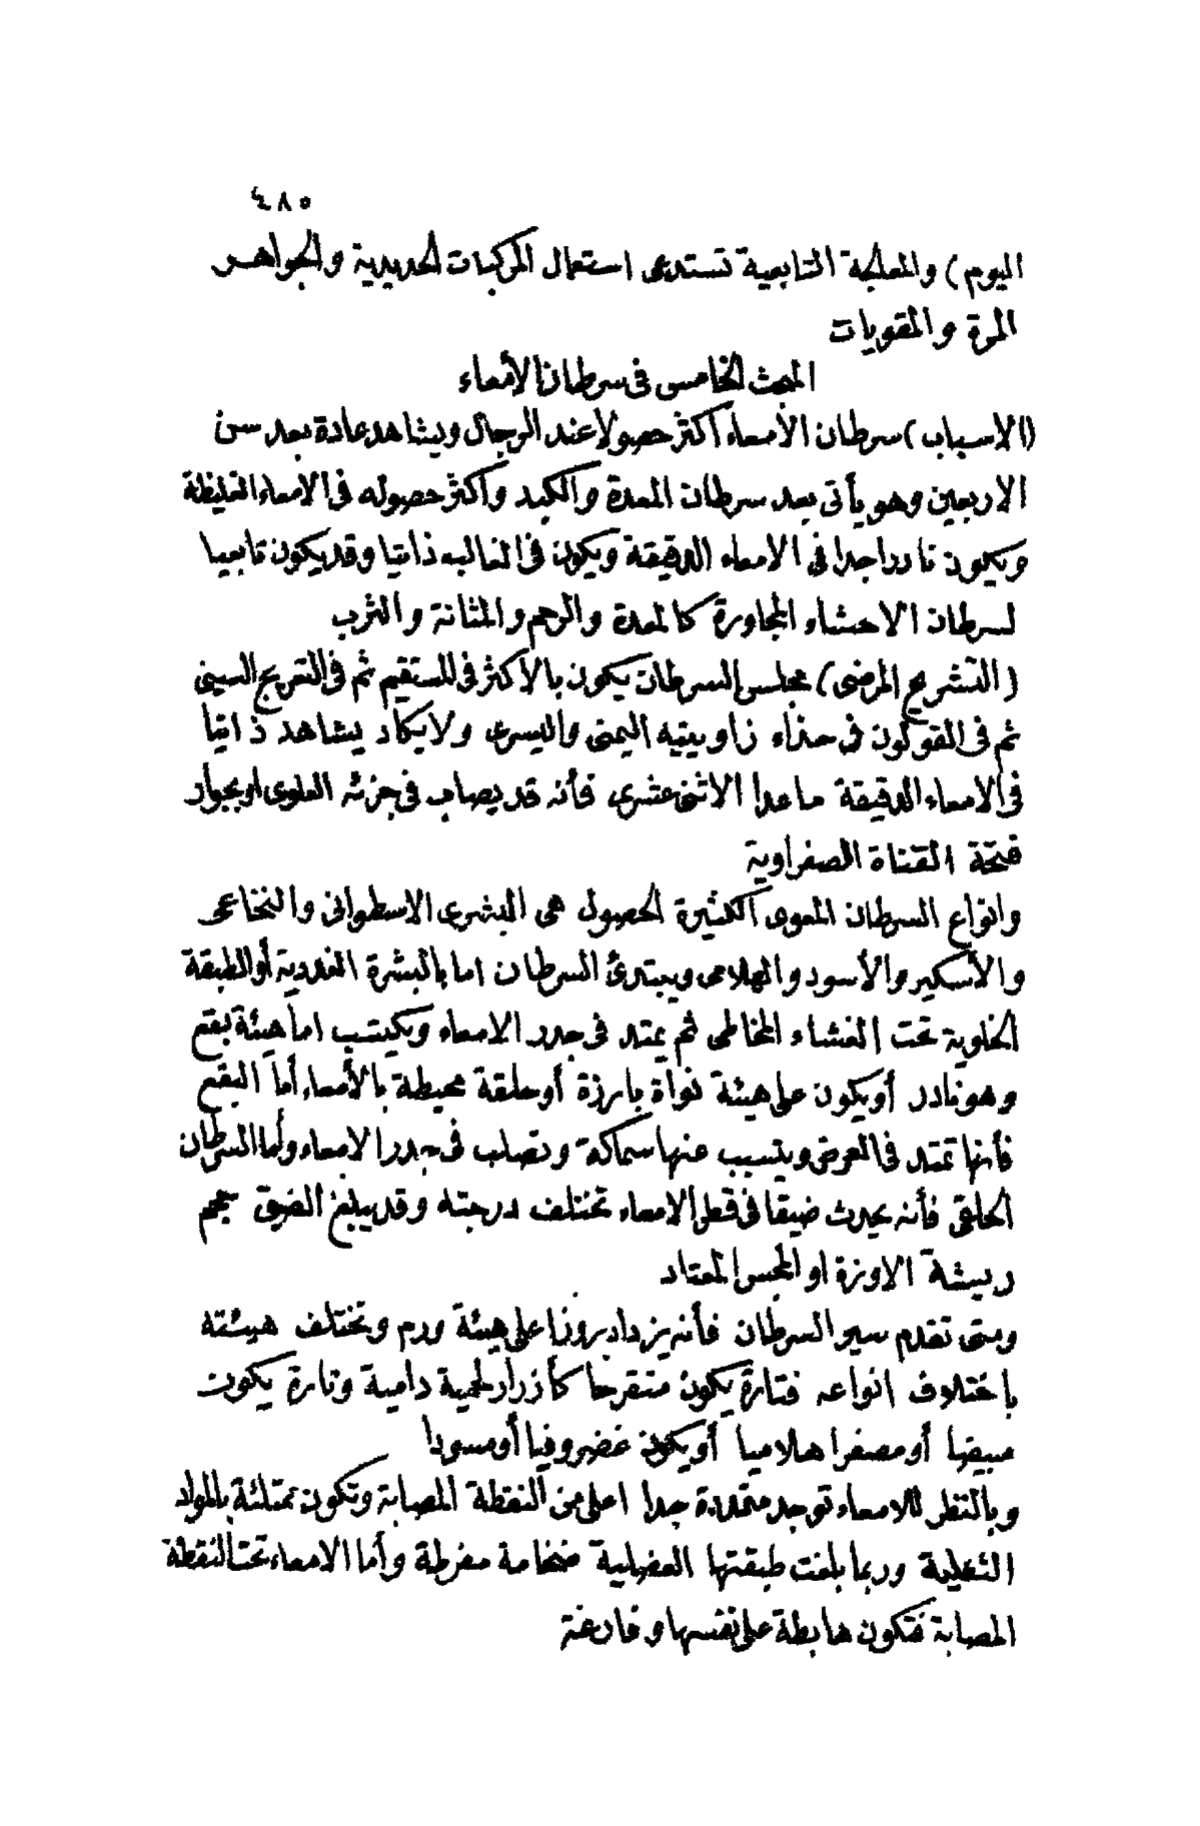 ٤٨٥
اليوم) والمعالجة التابعية تستدعى استعمال المركبات الحديدية والجواهر
المرة والمقويات
المبحث الخامس فى سرطان الأمعاء
(الاسباب) سرطان الأمعاء أكثر حصولا عند الرجال ويشاهد عادة بعد سن
الاربعين وهو يأتى بعد سرطان المعدة والكبد وأكثر حصوله فى الامعاء الغليظة
ويكون نادرا جدا فى الامعاء الدقيقة ويكون فى الغالب ذاتيا وقد يكون تابعيا
لسرطان الاحشاء المجاورة كالمعدة والرحم والمثانة والثرب
(التشريح المرضى) مجلس السرطان يكون بالاكثر فى المستقيم ثم فى التعريج السينى
ثم فى القولون فى حذاء زاويتيه اليمنى واليسرى ولا يكاد يشاهد ذاتيا
فى الامعاء الدقيقة ماعدا الاثنى عشرى فأنه قد يصاب فى جزئه العلوى او بجوار
فتحة القناة الصفراوية
وانواع السرطان المعوى الكثيرة الحصول هى البشرى الاسطوانى والنخاعى
والأسكير والأسود والهلامى ويبتدئ السرطان اما بالبشرة الغددية أو الطبقة
الخلوية تحت الغشاء المخاطى ثم يمتد فى جدر الامعاء ويكتسب اما هيئة بقع
وهو نادر أو يكون على هيئة نواة بارزة أو حلقة محيطة بالأمعاء أما البقع
فأنها تمتد فى العرض ويتسبب عنها سماكة وتصلب فى جدر الامعاء وأما السرطان
الحلقى فأنه يحدث ضيقا فى قطر الامعاء تختلف درجته وقد يبلغ الضيق حجم
ريشة الاوزة او المجس المعتاد
ومتى تقدم سير السرطان فأنه يزداد بروزا على هيئة ورم وتختلف هيئته
باختلاف انواعه فتارة يكون متقرحا كأزرار لحمية دامية وتارة يكون
مبيضا أو مصفرا هلاميا أو يكون غضروفيا أو مسودا
وبالنظر للامعاء توجد متمددة جدا اعلى من النقطة المصابة وتكون ممتلئة بالمواد
الثفلية وربما بلغت طبقتها العضلية ضخامة مفرطة وأما الامعاء تحت النقطة
المصابة فتكون هابطة على نفسها وفارغة